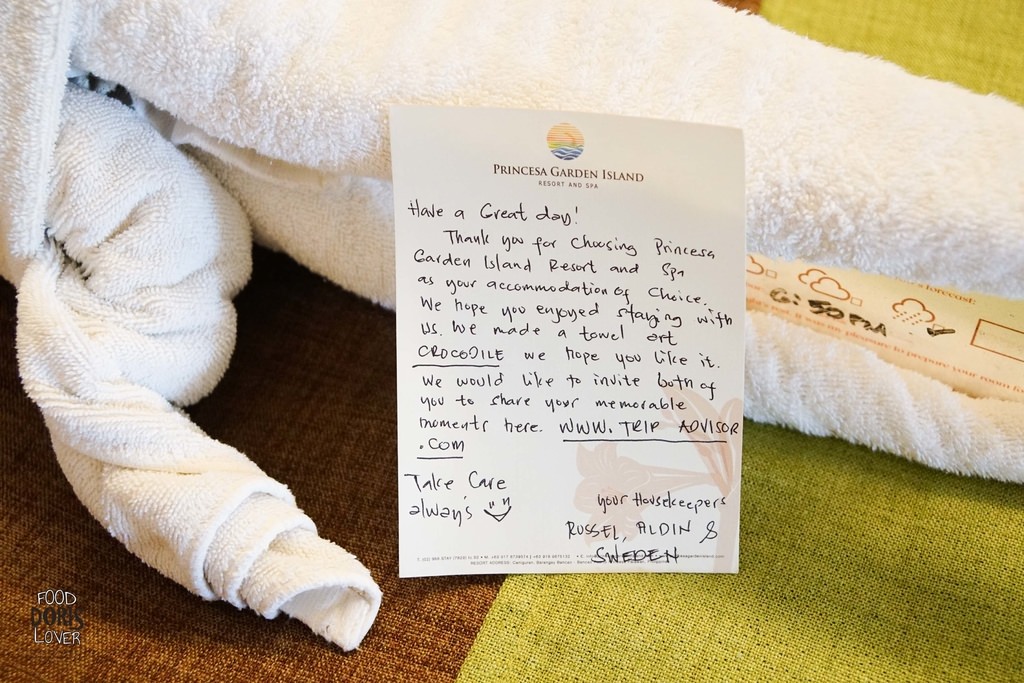 PRINCESA GARDEN ISLAND
RESORT AND SPA
Have a Great day!
Thank you for Choosing Princesa
Garden Island Resort and Spa
as your accommodation of Choice.
We hope you enjoyed staying with
us. We made a towel art
CROCODILE we hope you like it.
We would like to invite both of
you to share your memorable
moments here. WWW.TRIP ADVISOR
.COM
Take Care
always
your Housekeepers
RUSSEL, ALDIN &
SWEDEN
RESORT ADDRESS:
forecast:
6:50 PM
pleasure to prepare your room
FOOD
DORIS
LOVER